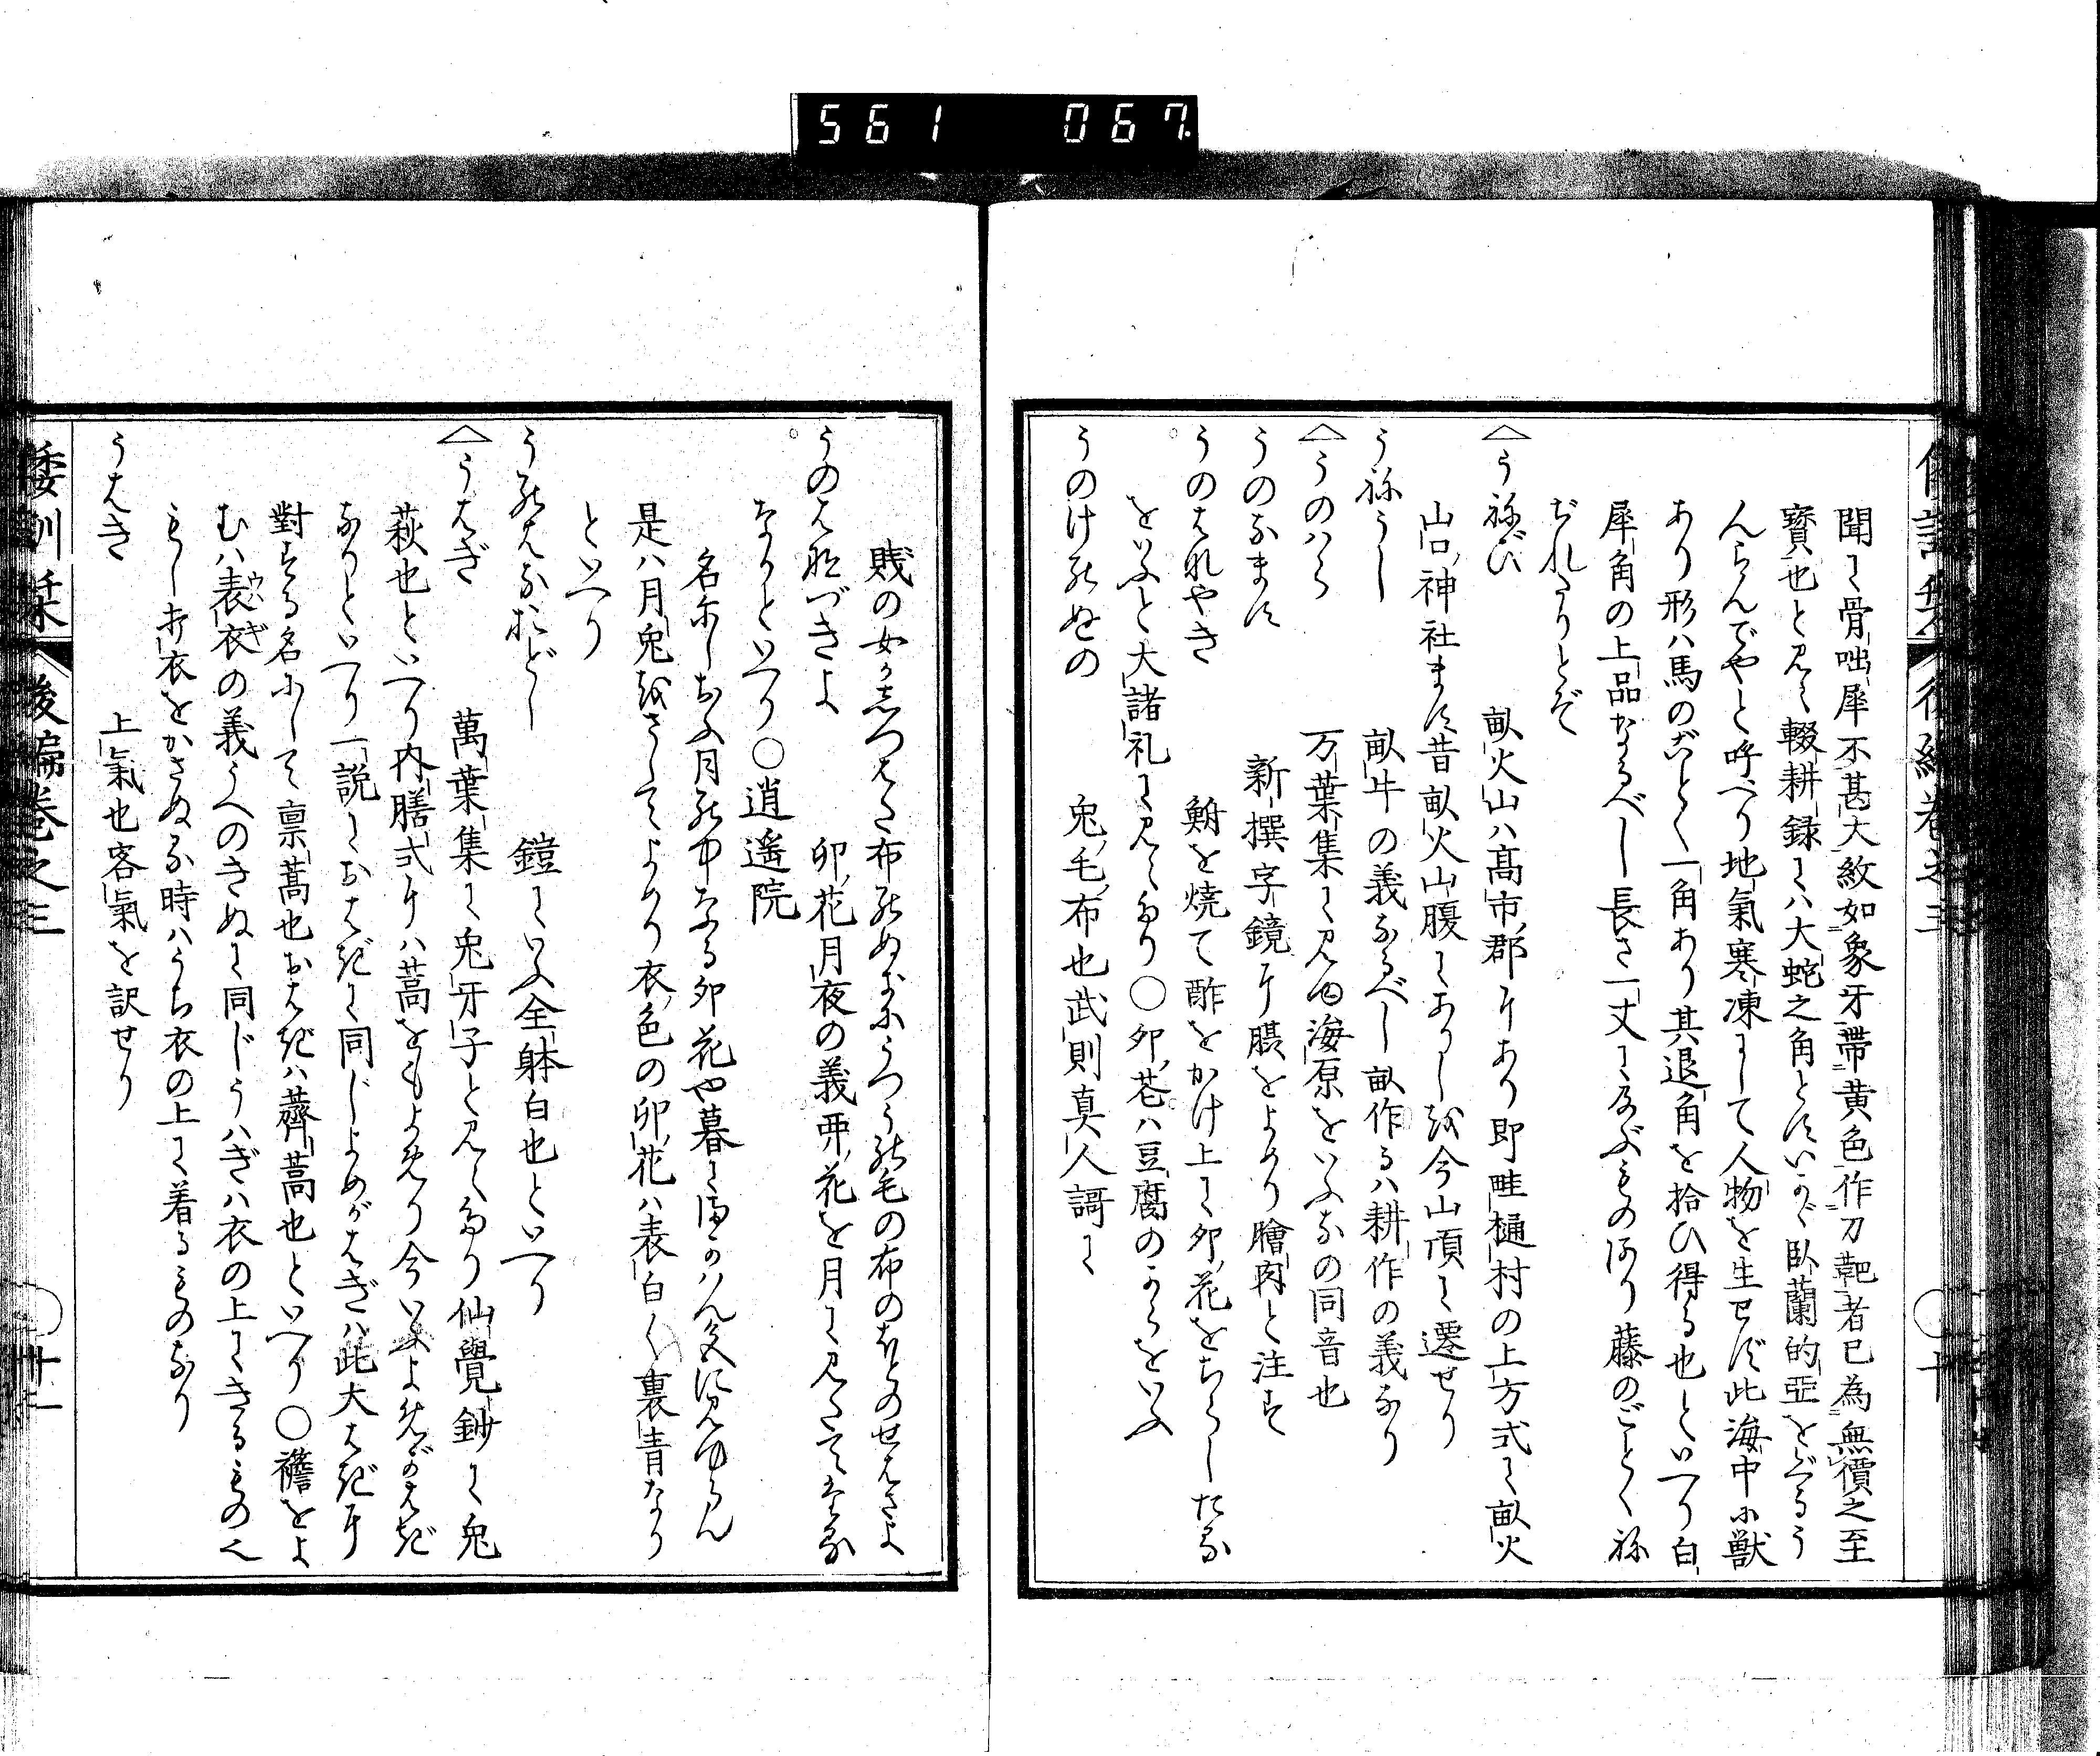 561 067
聞て骨咄犀不甚大紋如象牙帯黄色作刀靶者已為無價之至
寳也と見え輟耕録にハ大蛇之角とすいかゞ臥蘭的亞をぐるう
んらんでやと呼へり地氣寒凍にして人物を生せず此海中に獣
あり形ハ馬のごとく一角あり其退角を拾ひ得る也といへり白
犀角の上品なるべし長さ一丈に及ぶもの有り藤のごとくね
ぢれたりとぞ
うねび 畝火山ハ高市郡にあり即畦樋村の上方式に畝火
山口神社ます昔畝火山腹にありしを今山頂に遷せり
うねうし 畝牛の義なるべし畝作るハ耕作の義なり
うのハら 万葉集に見ゆ海原をいふなの同音也
うのなます 新撰字鏡に䐑をよめり膾肉と注す
うのはなやき 鮒を焼て酢をかけ上に卯花をちらしたる
をいふと大諸礼に見えたり〇卯花ハ豆腐のからをいふ
うのけのぬの 兎毛布也武則真人謌に
賎の女がしつはた布のぬきにうつうの毛の布のほとのせはさよ
うのはなづきよ 卯花月夜の義卯花を月に見たてたる
なりといへり〇逍遥院
名にしおふ月の中なる卯花や暮て待らん友に見ゆらん
是ハ月兎をさしてよめり衣色の卯花ハ表白く裏青なり
といへり
うのはなおどし 鎧にいふ全躰白也といへり
うはぎ 萬葉集に兎牙子と見えたり仙覺鈔に兎
萩也といへり内膳式にハ蒿をもよめり今いふよめがはぎ
なりといへり一説におはぎに同じよめがはぎハ此大はぎに
對する名にして禀蒿也おはぎハ薺蒿也といへり〇襜をよ
むハ表衣の義うへのきぬに同じうハぎハ衣の上にきるものへ
もし打衣をかさぬる時ハうち衣の上に着るものなり
うはき 上氣也客氣を訳せり
倭訓栞 後編巻之三 〇十一